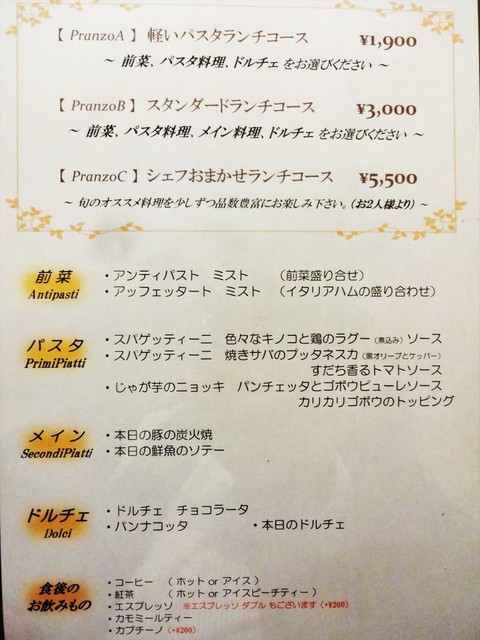 【 PranzoA 】 軽いパスタランチコース ¥1,900
～ 前菜、パスタ料理、ドルチェ をお選びください ～
【 PranzoB 】 スタンダードランチコース ¥3,000
～ 前菜、パスタ料理、メイン料理、ドルチェ をお選びください ～
【 PranzoC 】 シェフおまかせランチコース ¥5,500
～ 旬のオススメ料理を少しずつ品数豊富にお楽しみ下さい。(お2人様より) ～
前菜
Antipasti
・アンティパスト ミスト （前菜盛り合せ）
・アッフェッタート ミスト （イタリアハムの盛り合わせ）
パスタ
PrimiPiatti
・スパゲッティーニ 色々なキノコと鶏のラグー（煮込み）ソース
・スパゲッティーニ 焼きサバのプッタネスカ（黒オリーブとケッパー）
すだち香るトマトソース
・じゃが芋のニョッキ パンチェッタとゴボウピューレソース
カリカリゴボウのトッピング
メイン
SecondiPiatti
・本日の豚の炭火焼
・本日の鮮魚のソテー
ドルチェ
Dolci
・ドルチェ チョコラータ
・パンナコッタ ・本日のドルチェ
食後の
お飲みもの
・コーヒー （ホット or アイス）
・紅茶 （ホット or アイスピーチティー）
・エスプレッソ ※エスプレッソ ダブル もございます（+¥200）
・カモミールティー
・カプチーノ（+¥200）